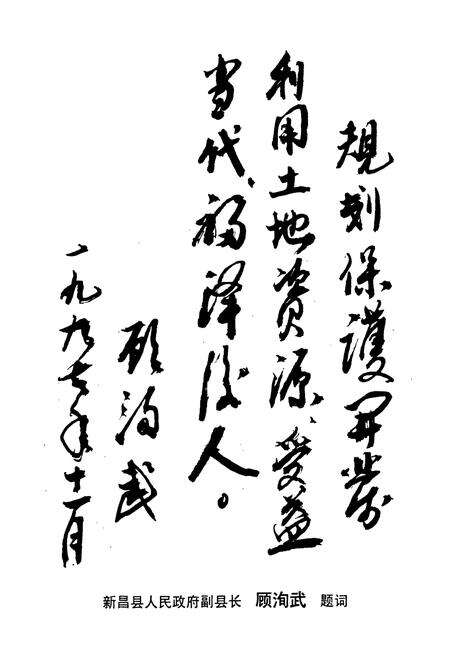 規划保護開發
利用土地資源、受益
当代、福泽後人。
顾洵武
一九九七年十一月
新昌县人民政府副县长 顾洵武 题词